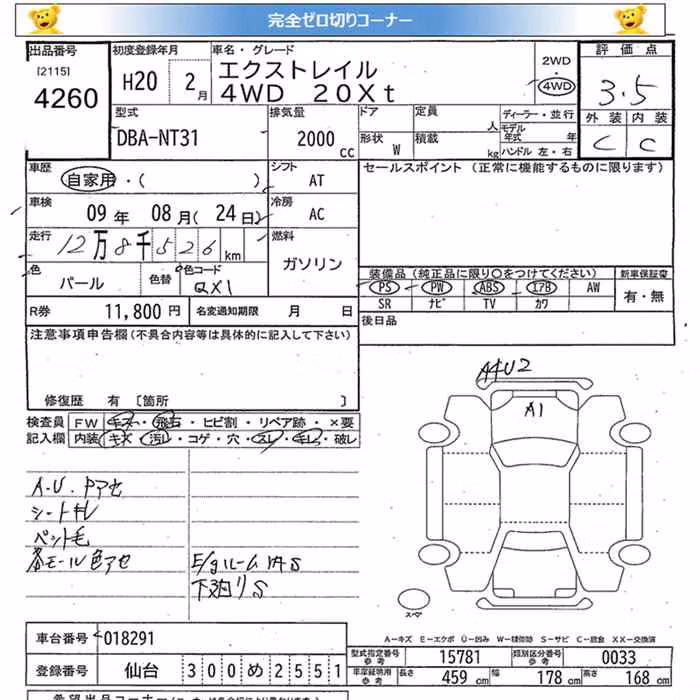 完全ゼロ切りコーナー
出品番号
[2115]
4260
初度登録年月
H20 2月
車名・グレード
エクストレイル
4WD 20Xt
2WD
4WD
評価点
3.5
外装 内装
C C
型式
DBA-NT31
排気量
2000 cc
ドア
定員 人
形状 W
積載 kg
ディーラー・並行
モデル年式 年
ハンドル 左・右
車歴
自家用・( )
シフト
AT
セールスポイント (正常に機能するものに限ります)
車検
09年 08月(24日)
冷房
AC
走行
12万8千526km
燃料
ガソリン
色
パール
色替
色コード
QX1
装備品(純正品に限り○をつけてください)
新車保証書
PS PW ABS エアB AW
有・無
SR ナビ TV カワ
R券
11,800円
名変通知期限 月 日
後日品
注意事項申告欄(不具合内容等は具体的に記入して下さい)
修復歴 有 [箇所 ]
検査員記入欄
FW キズ・飛石・ヒビ割・リペア跡・×要
内装 キズ・汚レ・コゲ・穴・スレ・キレ・破レ
A4U2
A1
A.U.Pアセ
シートキレ
ペット毛
各モール色アセ
E/gルーム内S
下廻りS
スペア
A-キズ E-エクボ U-凹み W-補修跡 S-サビ C-腐食 XX-交換済
車台番号
018291
型式指定番号 参考
15781
類別区分番号 参考
0033
登録番号
仙台 300め2551
車庫証明用 参考
長さ 459cm 幅 178cm 高さ 168cm
希望出品コーナー